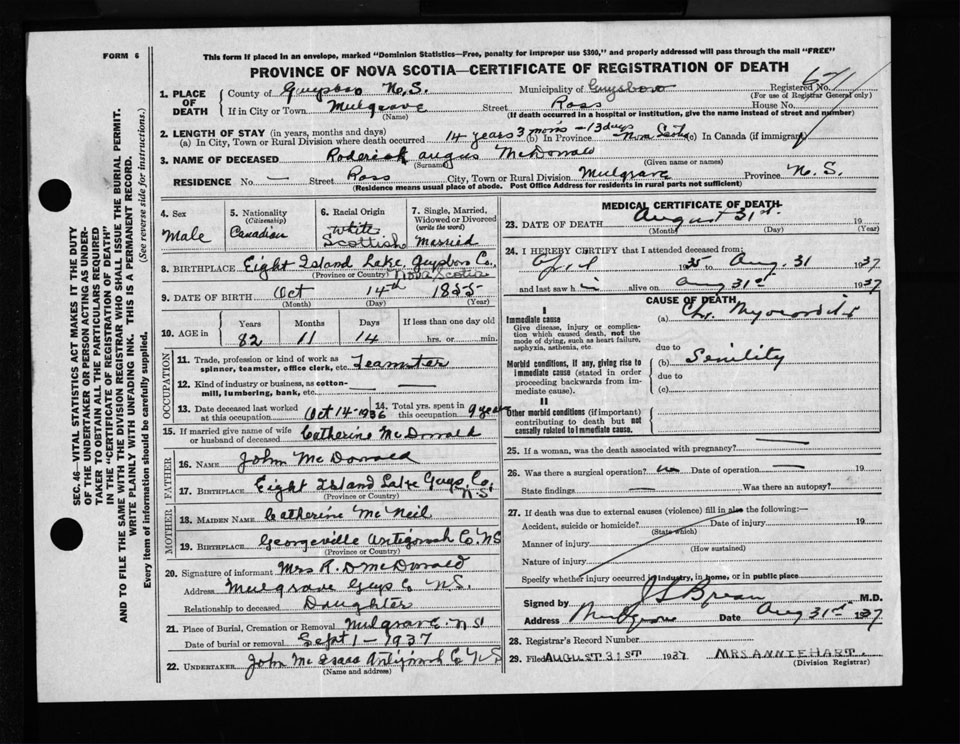 FORM 6
This form if placed in an envelope, marked "Dominion Statistics—Free, penalty for improper use $300," and properly addressed will pass through the mail "FREE"
PROVINCE OF NOVA SCOTIA—CERTIFICATE OF REGISTRATION OF DEATH
SEC. 46—VITAL STATISTICS ACT MAKES IT THE DUTY
OF THE UNDERTAKER OR PERSON ACTING AS UNDER-
TAKER TO OBTAIN ALL THE PARTICULARS REQUIRED
IN THE "CERTIFICATE OF REGISTRATION OF DEATH"
AND TO FILE THE SAME WITH THE DIVISION REGISTRAR WHO SHALL ISSUE THE BURIAL PERMIT.
WRITE PLAINLY WITH UNFADING INK. THIS IS A PERMANENT RECORD.
Every item of information should be carefully supplied. (See reverse side for instructions.)
1. PLACE OF DEATH
County of Guysboro N.S. Municipality of Guysboro Registered No. 671
(For use of Registrar General only)
If in City or Town Mulgrave Street Ross House No.
(Name) (If death occurred in a hospital or institution, give the name instead of street and number)
2. LENGTH OF STAY (in years, months and days)
(a) In City, Town or Rural Division where death occurred 14 years 3 mons - 13 days (b) In Province Nova Scotia (c) In Canada (if immigrant)
3. NAME OF DECEASED Roderick Angus McDonald
(Surname) (Given name or names)
RESIDENCE No. — Street Ross City, Town or Rural Division Mulgrave Province N.S.
(Residence means usual place of abode. Post Office Address for residents in rural parts not sufficient)
4. Sex Male
5. Nationality (Citizenship) Canadian
6. Racial Origin White Scottish
7. Single, Married, Widowed or Divorced (write the word) Married
8. BIRTHPLACE Eight Island Lake, Guysboro Co.,
(Province or Country) Nova Scotia
9. DATE OF BIRTH Oct 14th 1855
(Month) (Day) (Year)
10. AGE in Years Months Days If less than one day old
82 11 14 hrs. or min.
OCCUPATION
11. Trade, profession or kind of work as spinner, teamster, office clerk, etc. Teamster
12. Kind of industry or business, as cotton-mill, lumbering, bank, etc. — —
13. Date deceased last worked at this occupation Oct 14-1936 14. Total yrs. spent in this occupation 9 years
15. If married give name of wife or husband of deceased Catherine McDonald
FATHER
16. NAME John McDonald
17. BIRTHPLACE Eight Island Lake Guys. Co, N.S
(Province or Country)
MOTHER
18. MAIDEN NAME Catherine McNeil
19. BIRTHPLACE Georgeville Antigonish Co. NS
(Province or Country)
20. Signature of informant Mrs R. D McDonald
Address Mulgrave Guys Co N.S.
Relationship to deceased Daughter
21. Place of Burial, Cremation or Removal Mulgrave NS
Date of burial or removal Sept 1 - 1937
22. UNDERTAKER John McIsaac Antigonish Co NS
(Name and address)
MEDICAL CERTIFICATE OF DEATH
23. DATE OF DEATH August 31st. 19
(Month) (Day) (Year)
24. I HEREBY CERTIFY that I attended deceased from:
April 1935 to Aug. 31 1937
and last saw h im alive on Aug 31st 1937
CAUSE OF DEATH
I
Immediate cause (a) Chr. Myocarditis
Give disease, injury or complication which caused death, not the mode of dying, such as heart failure, asphyxia, asthenia, etc.
due to
Morbid conditions, if any, giving rise to immediate cause (stated in order proceeding backwards from immediate cause). (b) Senility
due to
(c)
II
Other morbid conditions (if important) contributing to death but not causally related to immediate cause.
25. If a woman, was the death associated with pregnancy? —
26. Was there a surgical operation? no Date of operation — 19
State findings — Was there an autopsy?
27. If death was due to external causes (violence) fill in also the following:—
Accident, suicide or homicide? Date of injury 19
(State which)
Manner of injury
(How sustained)
Nature of injury
Specify whether injury occurred in industry, in home, or in public place
Signed by M.D.
Address Mulgrave Date Aug 31st 1937
28. Registrar's Record Number
29. Filed AUGUST 31ST 1937 MRS ANNIE HART.
(Division Registrar)